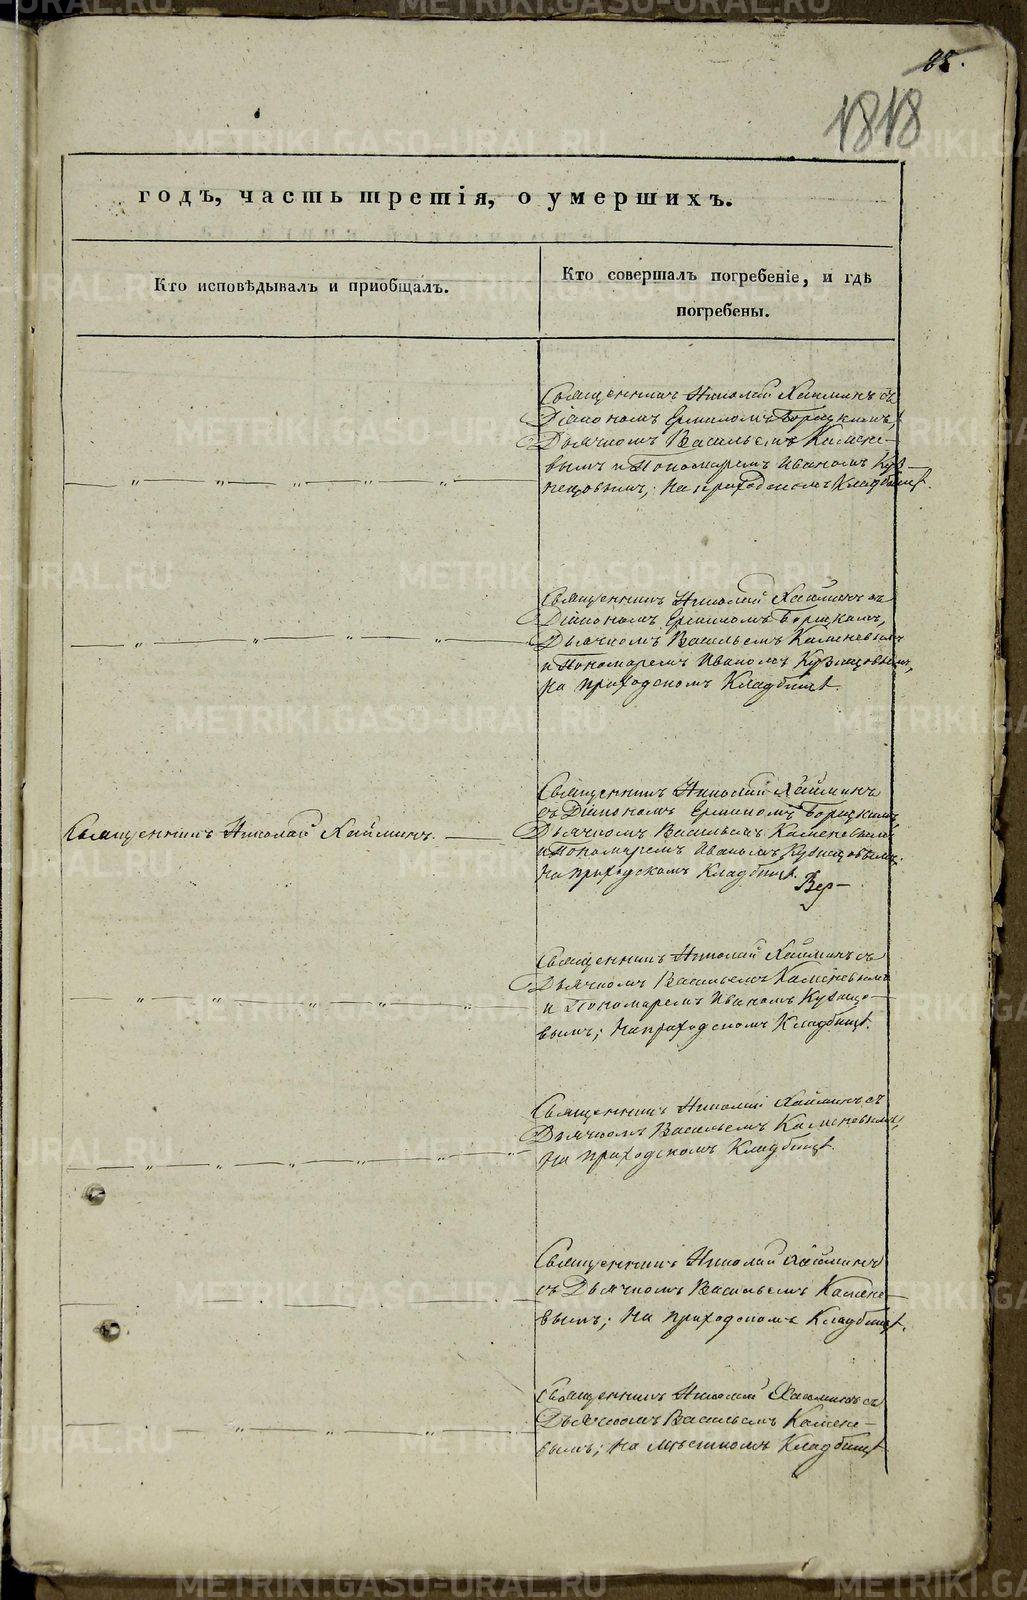 85.
1818
годъ, часть третія, о умершихъ.
Кто исповѣдывалъ и приобщалъ.
Кто совершалъ погребеніе, и гдѣ
погребены.
Священникъ Николай Хайминъ съ
Діакономъ Ермиломъ Борицкимъ,
Дьячкомъ Васильемъ Камене-
вымъ и Пономаремъ Иваномъ Куз-
нецовымъ; На приходскомъ Кладбищѣ.
Священникъ Николай Хайминъ съ
Діакономъ Ермиломъ Борицкимъ,
Дьячкомъ Васильемъ Каменевымъ
и Пономаремъ Иваномъ Кузнецовымъ,
На приходскомъ Кладбищѣ.
Священникъ Николай Хайминъ.
Священникъ Николай Хайминъ
съ Діакономъ Ермиломъ Борицкимъ,
Дьячкомъ Васильемъ Каменевымъ
и Пономаремъ Иваномъ Кузнецовымъ;
На приходскомъ Кладбищѣ.
Вер-
Священникъ Николай Хайминъ съ
Дьячкомъ Васильемъ Каменевымъ
и Пономаремъ Иваномъ Кузнецо-
вымъ; На приходскомъ Кладбищѣ.
Священникъ Николай Хайминъ съ
Дьячкомъ Васильемъ Каменевымъ,
На приходскомъ Кладбищѣ.
Священникъ Николай Хайминъ
съ Дьячкомъ Васильемъ Камене-
вымъ; На приходскомъ Кладбищѣ.
Священникъ Николай Хайминъ съ
Дьячкомъ Васильемъ Камене-
вымъ; На мѣстномъ Кладбищѣ
METRIKI.GASO-URAL.RU